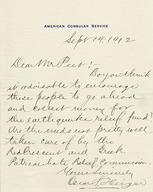 AMERICAN CONSULAR SERVICE
Sept 14, 1912
Dear Mr Peet:-
Do you think
it advisable to encourage
these people to go ahead
and collect money for
the earthquake relief fund?
Are the needs not pretty well
taken care of by the
and
Patriarchate Relief Commission.
Yours Sincerely